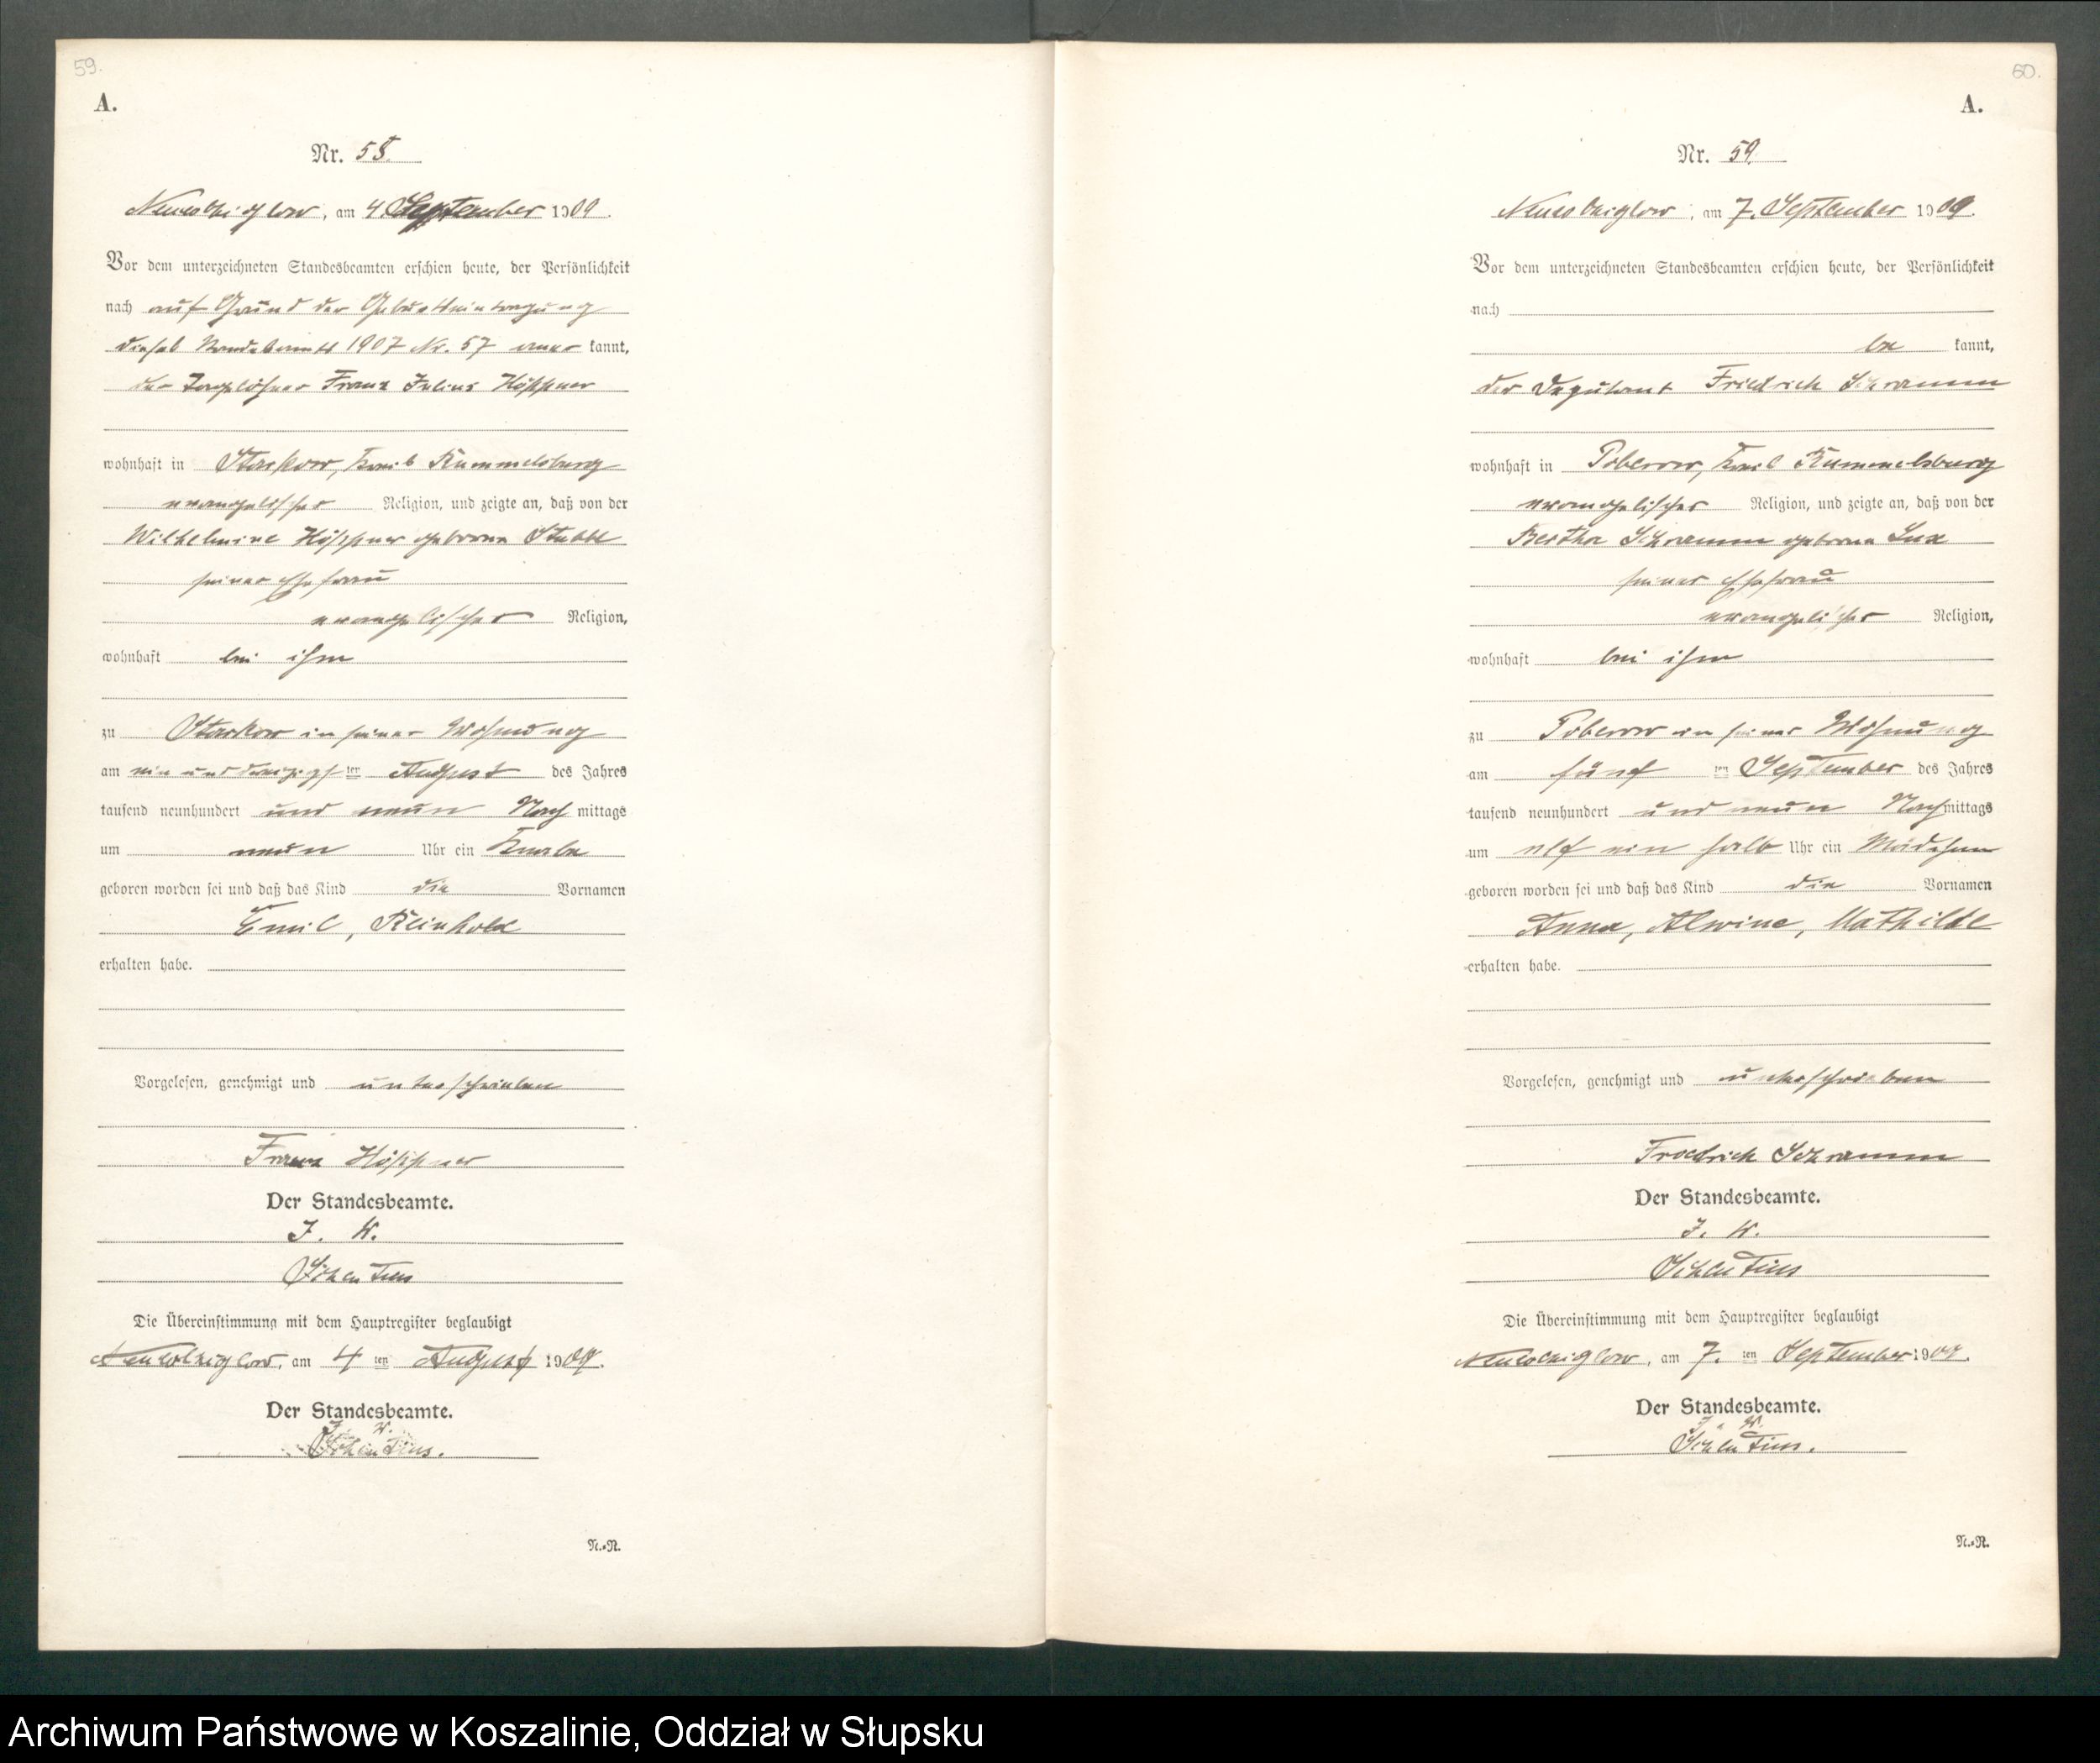 59.
A.
Nr. 58.
Neukolziglow, am 4. September 1909.
Vor dem unterzeichneten Standesbeamten erschien heute, der Persönlichkeit
nach auf Grund der Geburtseintragung
dieses Standesamts 1907 Nr. 57 aner kannt,
der Tagelöhner Franz Julius Höppner
wohnhaft in Starkow, Kreis Rummelsburg
evangelischer Religion, und zeigte an, daß von der
Wilhelmine Höppner geborene Stubbe
seiner Ehefrau
evangelischer Religion,
wohnhaft bei ihm
zu Starkow in seiner Wohnung
am ein und dreizigs ten August des Jahres
tausend neunhundert und neun Nach mittags
um neun Uhr ein Knabe
geboren worden sei und daß das Kind die Vornamen
Emil, Reinhold
erhalten habe.
Vorgelesen, genehmigt und unterschrieben
Franz Höppner
Der Standesbeamte.
J. V.
Schlutius
Die Übereinstimmung mit dem Hauptregister beglaubigt
Neukolziglow, am 4 ten August 1909.
Der Standesbeamte.
J. V.
Schlutius.
N.=R.
60.
A.
Nr. 59.
Neukolziglow, am 7. September 1909.
Vor dem unterzeichneten Standesbeamten erschien heute, der Persönlichkeit
nach
be kannt,
der Deputant Friedrich Schramm
wohnhaft in Poberow, Kreis Rummelsburg
evangelischer Religion, und zeigte an, daß von der
Bertha Schramm geborene Lux
seiner Ehefrau
evangelischer Religion,
wohnhaft bei ihm
zu Poberow in seiner Wohnung
am fünf ten September des Jahres
tausend neunhundert und neun Nach mittags
um elf ein halb Uhr ein Mädchen
geboren worden sei und daß das Kind die Vornamen
Anna, Alwine, Mathilde
erhalten habe.
Vorgelesen, genehmigt und unterschrieben
Friedrich Schramm
Der Standesbeamte.
J. V.
Schlutius
Die Übereinstimmung mit dem Hauptregister beglaubigt
Neukolziglow, am 7. ten September 1909.
Der Standesbeamte.
J. V.
Schlutius.
N.=R.
Archiwum Państwowe w Koszalinie, Oddział w Słupsku